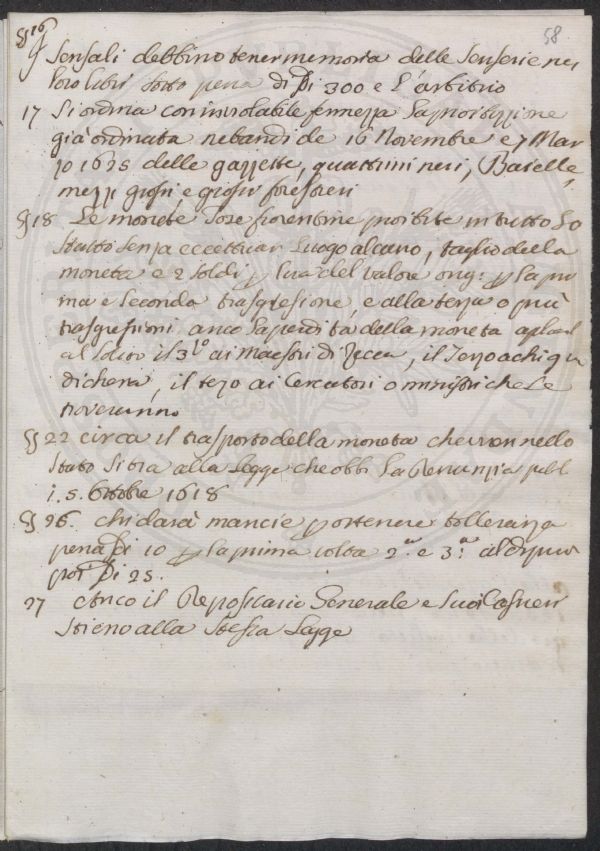 58
§ 16
I Sensali debbino tener memoria delle Senserie nei
loro libri sotto pena di ▽di 300 e L'arbitrio
17 Si ordina con inviolabile fermezza la proibizzione
già ordinata ne bandi de 16 Novembre e 7 Mar
zo 1635 delle gazzette, quattrini neri, Baielle,
mezzi grossi e grossi forestieri
§ 18 Le monete fiorentine proibite in tutto Lo
stato senza eccettuar Luogo alcuno, taglio della
moneta e 2 Soldi p Lira del valore p la pri
ma e Seconda trasgresione, e alla terza o più
trasgressioni anco la perdita della moneta
al Solito il 3º ai Maestri di Zecca, il Terzo a chi giu
dicherà, il terzo ai Cercatori o ministri che Le
troveranno
§ 22 circa il trasporto della moneta nello
stato Si stia alla Legge che obbi La
i. 5. Ottobre 1618
§ 26. chi darà mancie p ottenere tolleranza
pena ▽di 10 p la prima volta 2.ª e 3.ª
▽di 25.
27 Anco il Depositario Generale e Suoi Casieri
Stieno alla Stessa Legge